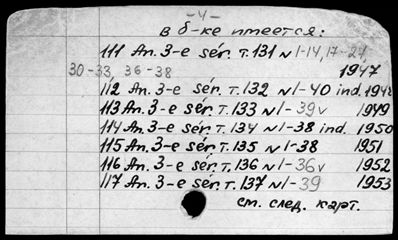 -4-
в б-ке имеется:
111 An. 3-e sér. т. 131 N 1-14, 17-27
30-33, 36-38 1947
112 An. 3-e sér. т. 132 N 1-40 ind. 1948
113 An. 3-e sér. т. 133 N 1-39v 1949
114 An. 3-e sér. т. 134 N 1-38 ind. 1950
115 An. 3-e sér. т. 135 N 1-38 1951
116 An. 3-e sér. т. 136 N 1-36v 1952
117 An. 3-e sér. т. 137 N 1-39 1953
см. след. карт.